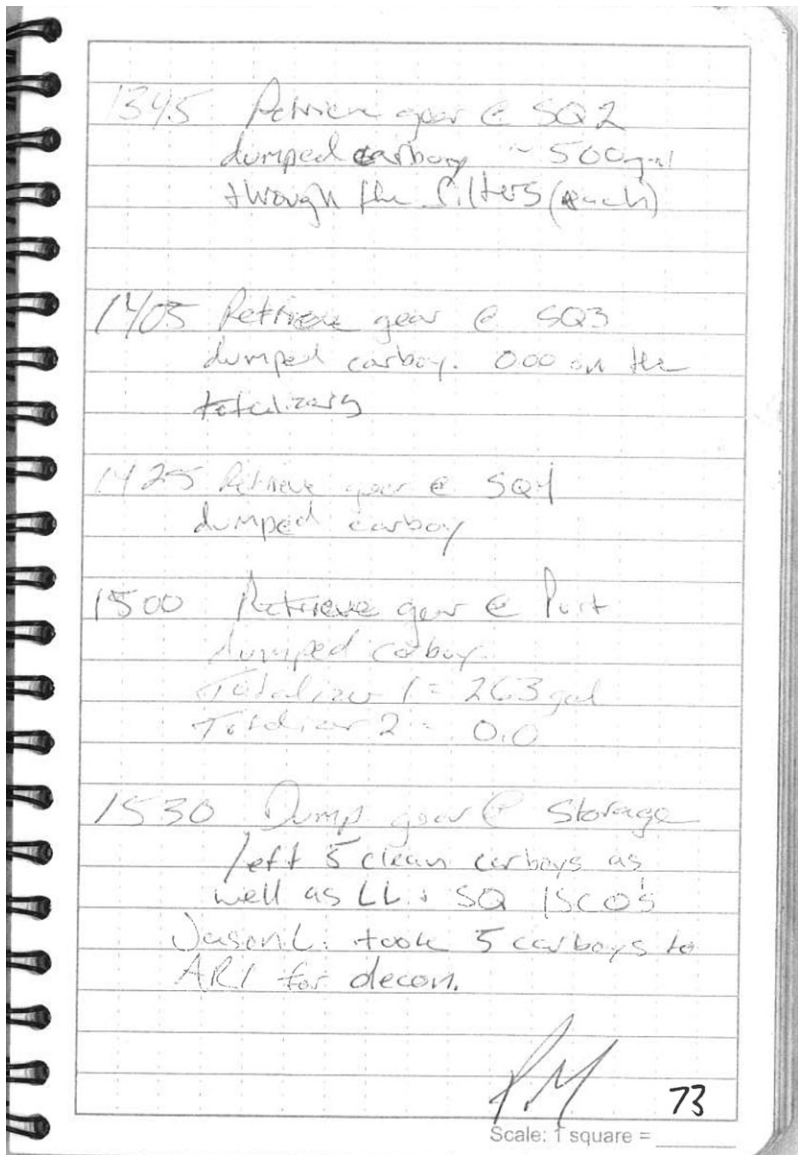 1345 Retrieve gear @ SQ2
dumped carboy ~ 500gal
through the filters (each)
1405 Retrieve gear @ SQ3
dumped carboy. 0.00 on the
totalizers
1425 Retrieve gear @ SQ4
dumped carboy
1500 Retrieve gear @ Port
dumped carboy
Totalizer 1 = 263 gal
Totalizer 2 = 0.0
1530 Dump gear @ Storage
left 5 clean carboys as
well as LL + SQ ISCO's
Jason L. took 5 carboys to
ARI for decon.
PM
73
Scale: 1 square =